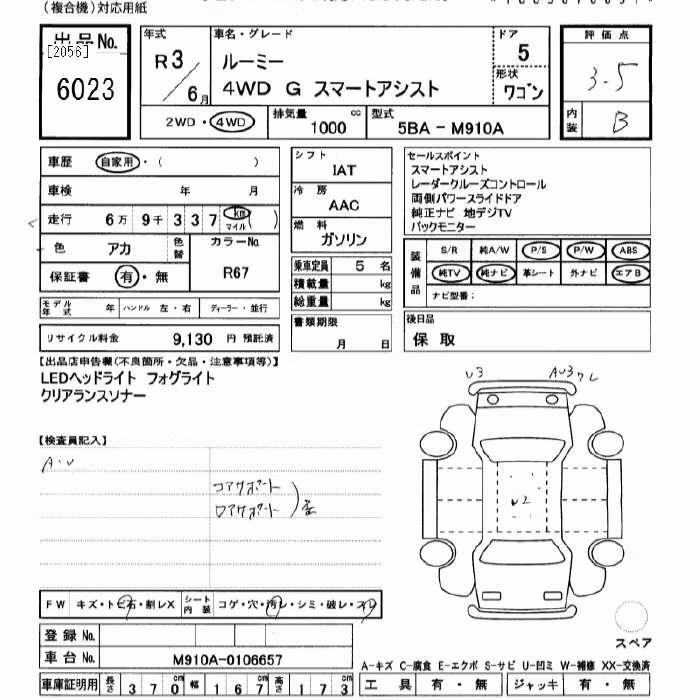 (複合機)対応用紙
出品No.
[2056]
6023
年式
R3/6月
車名・グレード
ルーミー
4WD G スマートアシスト
ドア
5
形状
ワゴン
評価点
3.5
内装
B
2WD・4WD
排気量
1000 cc
型式
5BA-M910A
車歴 自家用・( )
車検 年 月
走行 6万9千337 km マイル
色 アカ
色替
カラーNo.
R67
保証書 有・無
モデル年式 年 ハンドル 左・右 ディーラー・並行
リサイクル料金 9,130 円 預託済
シフト
IAT
冷房
AAC
燃料
ガソリン
乗車定員 5 名
積載量 kg
総重量 kg
書類期限
月 日
セールスポイント
スマートアシスト
レーダークルーズコントロール
両側パワースライドドア
純正ナビ 地デジTV
バックモニター
装備品
S/R 純A/W P/S P/W ABS
純TV 純ナビ 革シート 外ナビ エアB
ナビ型番:
後日品
保取
【出品店申告欄(不良箇所・欠品・注意事項等)】
LEDヘッドライト フォグライト
クリアランスソナー
【検査員記入】
A・U
コアサポート
ロアサポート
U3
AU3
U2
FW キズ・トビ石・割レX シート内装 コゲ・穴・汚レ・シミ・破レ・スレ
登録No.
車台No. M910A-0106657
車庫証明用 長さ 370cm 幅 167cm 高さ 173cm
スペア
A-キズ C-腐食 E-エクボ S-サビ U-凹ミ W-補修 XX-交換済
工具 有・無 ジャッキ 有・無